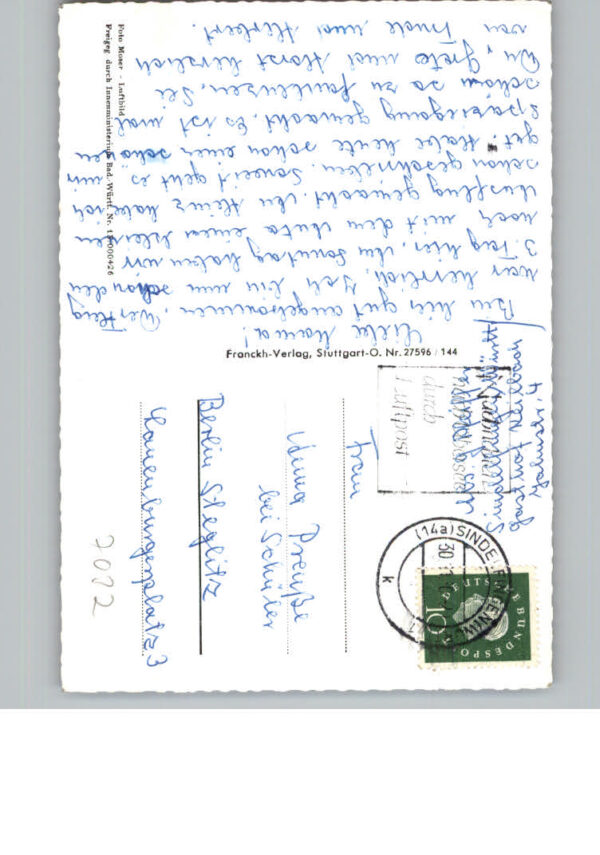 Liebe Mama!
Bin hier gut angekommen, der Flug
war herrlich. Ich bin nun schon den
3. Tag hier. Am Sonntag haben wir
noch mit dem Auto einen kleinen
Ausflug gemacht. An Heinz habe ich
schon geschrieben. Soweit geht es mir
gut. Habe heute schon einen schönen
Spaziergang gemacht. Es ist mal
schön so zu faulenzen. Sei
Du, Grete und Horst herzlich
von Trude und Herbert.
Foto Moser - Luftbild
Freigeg. durch Innenministerium Bad.-Württ. Nr.
Franckh-Verlag, Stuttgart-O. Nr. 27596 / 144
Sindelfingen
Gasthof
durch
Luftpost
(14a) SINDELFINGEN
30
k
DEUTSCHE BUNDESPOST
10
Frau
Anna Preuße
bei Schüler
Berlin Steglitz
Lauenburgerplatz 3
7022